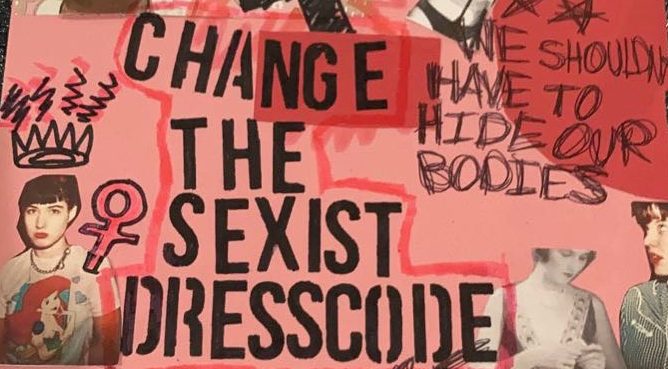 CHANGE
THE
SEXIST
DRESSCODE
WE SHOULDN
HAVE TO
HIDE OUR
BODIES